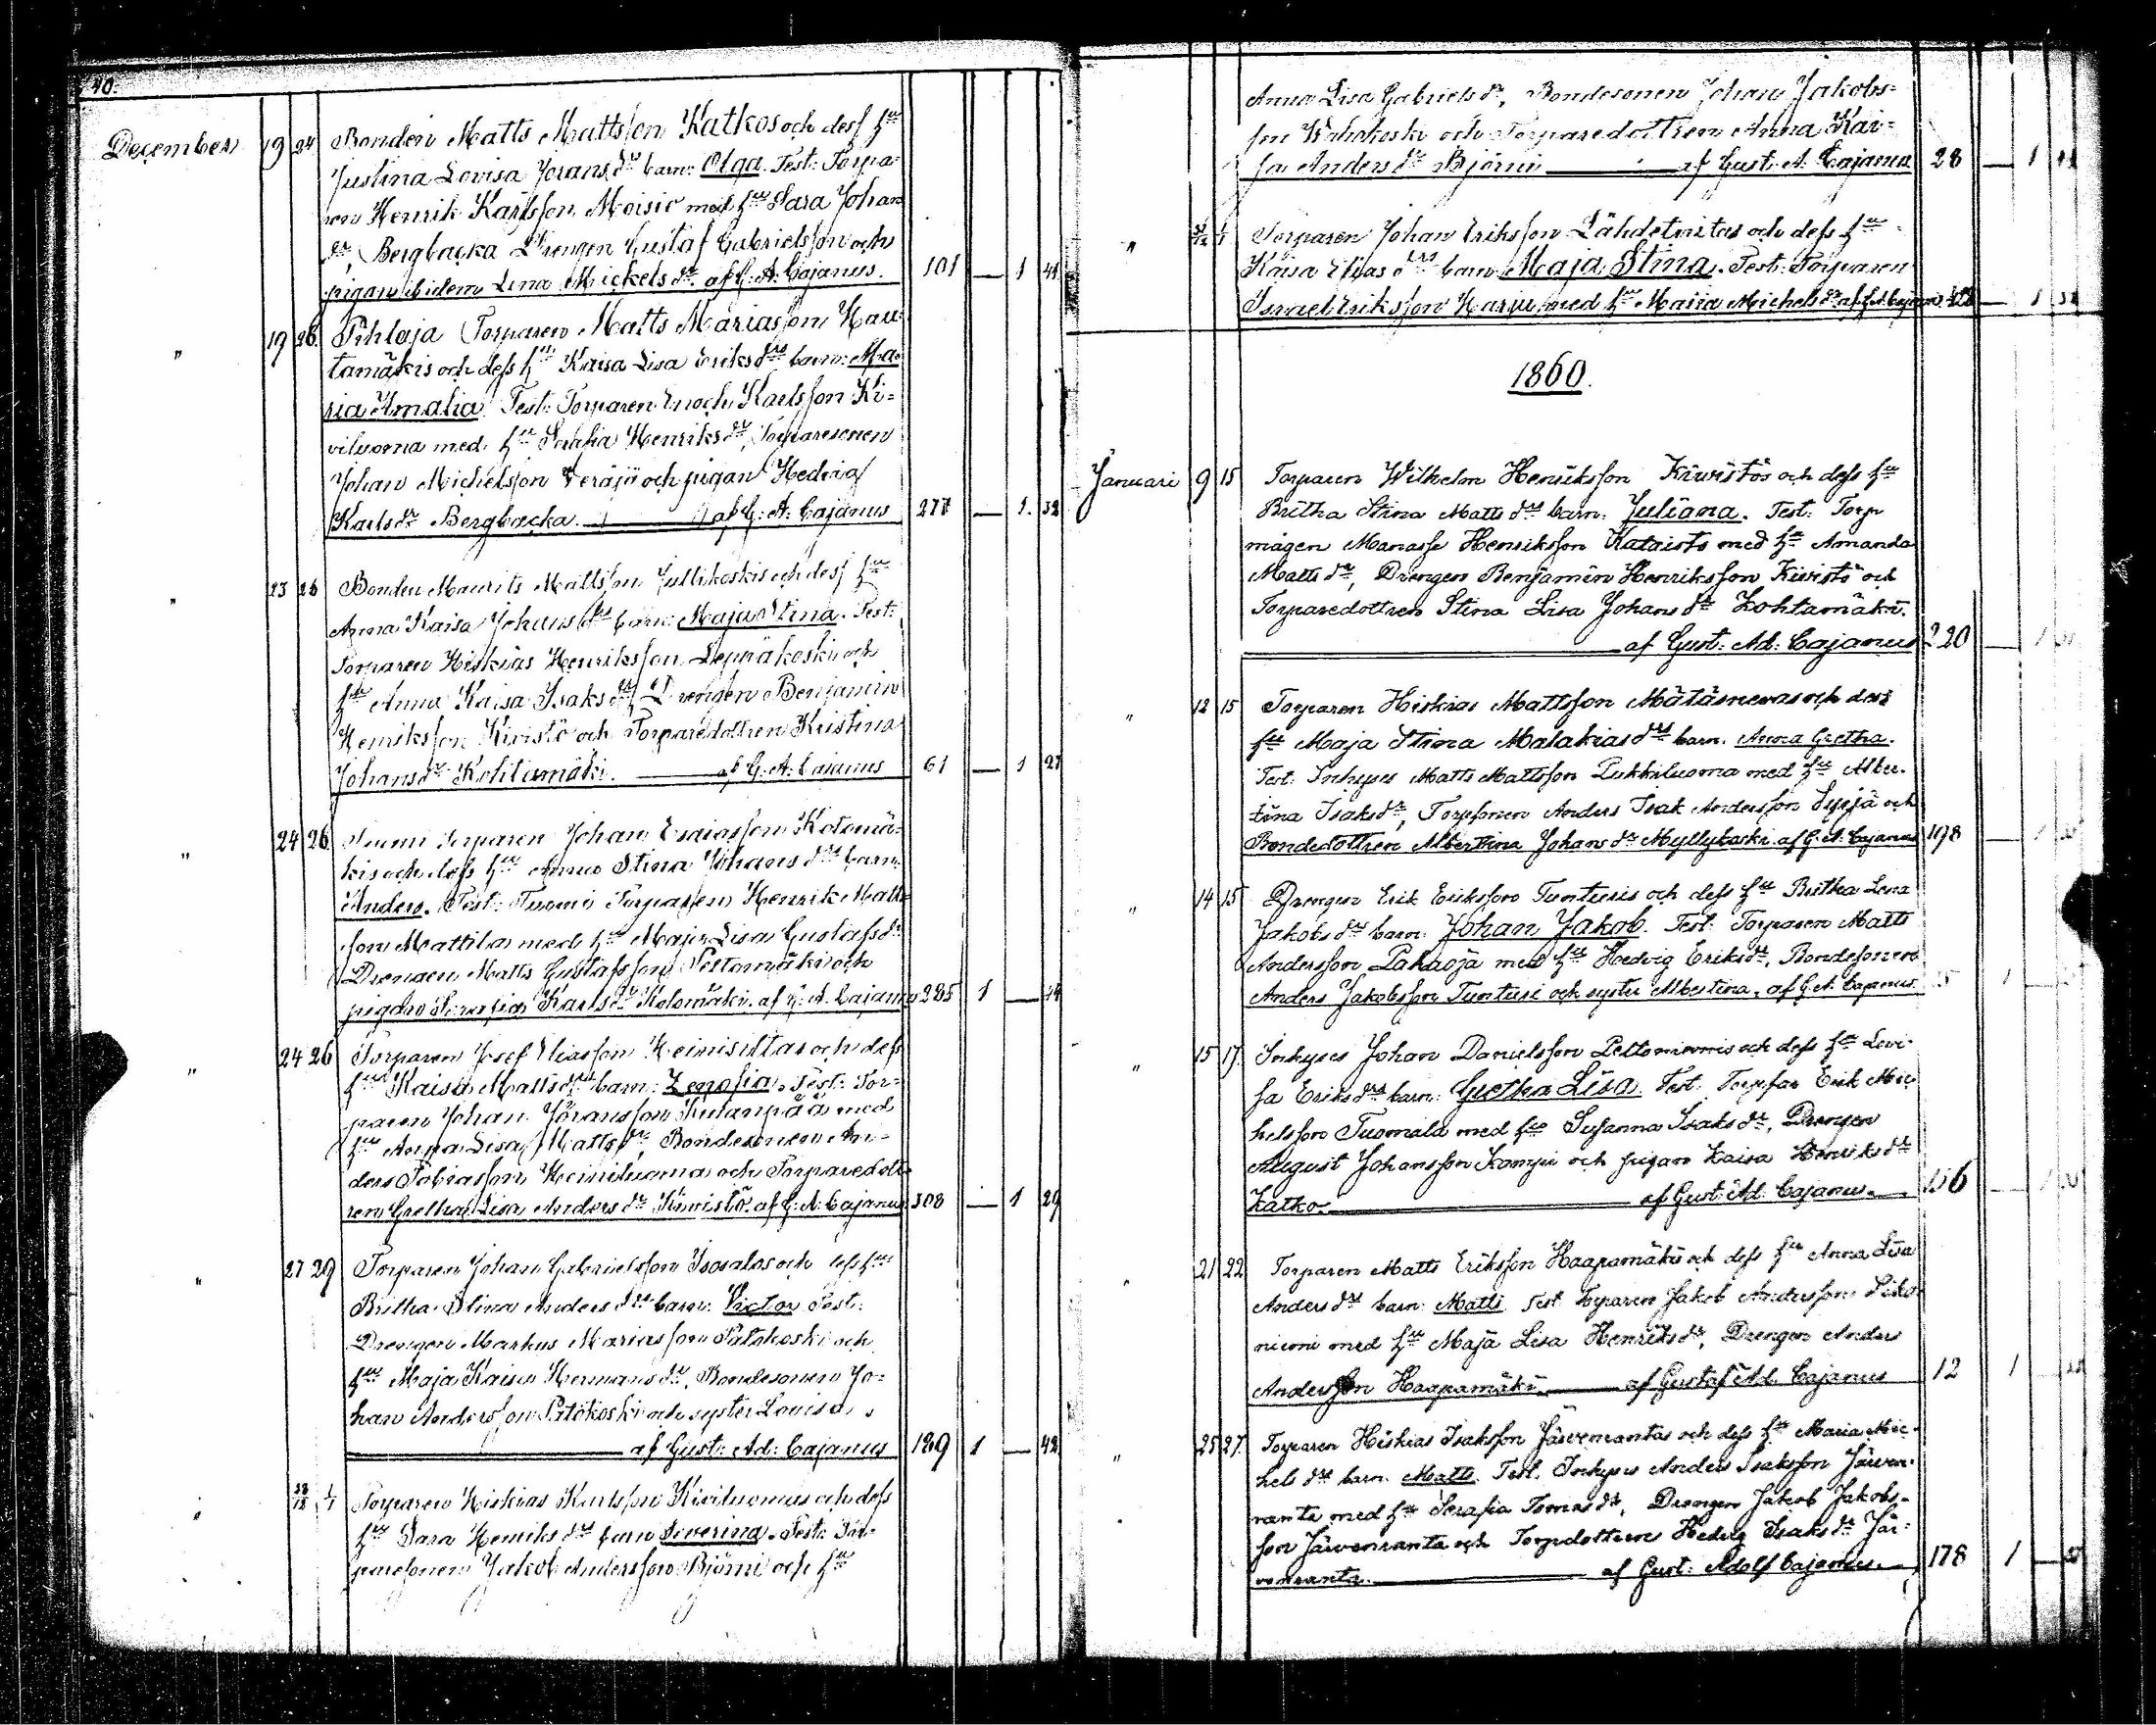 40.
December 19 24 Bonden Matts Mattsson Katkos och dess hu
Justina Lovisa Jorans dr barn: Olga. Test: Torpa-
ren Henrik Karlsson Moisio med hu Sara Johans
dr, Bergbacka Drengen Gustaf Gabrielsson och
pigan ibidem Lena Mickels dr. af G. A. Cajanus. 101 — 1 41
" 19 26 Pihlaja Torparen Matts Mariasson Hau-
tamäkis och dess hu Kaisa Lisa Eriks drs barn: Ma-
ria Amalia. Test: Torparen Enoch Karlsson Ki-
viluoma med hu Serafia Henriks dr, Torparesonen
Johan Michelsson Peräjä och pigan Hedvig
Karls dr Bergbacka. — af G. A. Cajanus 277 — 1 32
" 23 26 Bonden Maurits Mattsson Jyllikoskis och dess hu
Anna Kaisa Johans drs barn: Maja Stina. Test:
Torparen Hiskias Henriksson Leppäkoski och
hu Anna Kaisa Isaks dr, Drengen Benjamin
Henriksson Kivistö och Torparedottren Kristina
Johans dr Kohtamäki. — af G. A. Cajanus 61 — 1 27
" 24 26 Tuomi Torparen Johan Esaiasson Kotomä-
kis och dess hu Anna Stina Johans drs barn
Anders. Test: Tuomi Torparen Henrik Matts-
son Mattila med hu Maja Lisa Gustafs dr
Drengen Matts Gustafsson Peltomäki och
pigan Serafia Karls dr Kotomäki. af G. A. Cajanus 285 1 — 34
" 24 26 Torparen Josef Eliasson Heinisiltas och dess
hu Kaisa Matts drs barn: Zenofia. Test: Tor-
paren Johan Jöransson Kulanpää med
hu Anna Lisa Matts dr, Bondesonen An-
ders Tobiasson Heiniluoma och Torparedott-
ren Gretha Lisa Anders dr Kiwistö. af G. A. Cajanus 308 — 1 29
" 27 29 Torparen Johan Gabrielsson Isosalos och dess hu
Britha Stina Anders drs barn: Victor. Test:
Drengen Markus Mariasson Patokoski och
hu Maja Kaisa Hermans dr, Bondesonen Jo-
han Andersson Patokoski och syster Lovisa.
af Gust: Ad: Cajanus 189 1 — 42
" 1/1 Torparen Hiskias Karlsson Kiviluomas och dess
hu Sara Henriks drs barn Severina. Test: Tor-
paresonen Jakob Andersson Björni och hu
Anna Lisa Gabriels dr, Bondesonen Johan Jakobs-
son Wahakoski och Torparedottren Anna Kai-
sa Anders dr Björni — af Gust: A. Cajanus 28 — 1
" 31/12 1/1 Torparen Johan Eriksson Lähdeluitas och dess hu
Kaisa Elias drs barn Maja Stina. Test: Torparen
Israel Eriksson Harju med hu Maria Michels dr af G. A. Cajanus — 1 32
1860.
Januari 9 15 Torparen Wilhelm Henriksson Kiwistös och dess hu
Britha Stina Matts drs barn: Juliana. Test: Torp
mågen Manasse Henriksson Kataisto med hu Amanda
Matts dr, Drengen Benjamin Henriksson Kiwistö och
Torparedottren Stina Lisa Johans dr Kohtamäki.
af Gust: Ad: Cajanus 220 — 1
" 12 15 Torparen Hiskias Mattsson Mätäsnevas och dess
hu Maja Stina Malakias drs barn. Anna Gretha.
Test: Inhyses Matts Mattsson Pukkiluoma med hu Alber-
tina Isaks dr, Torpsonen Anders Isak Andersson Syrjä och
Bondedottren Albertina Johans dr Myllykoski af G. A. Cajanus 198 — 1
" 14 15 Drengen Erik Eriksson Tunturis och dess hu Britha Lena
Jakobs drs barn: Johan Jakob. Test: Torparen Matts
Andersson Pahaoja med hu Hedvig Eriks dr, Bondesonen
Anders Jakobsson Tunturi och syster Albertina, af G. A. Cajanus. 5 1
" 15 17 Inhyses Johan Danielsson Peltoniemis och dess hu Lovi-
sa Eriks drs barn: Gretha Lisa. Test: Torpfar Erik Mic-
helsson Tuomala med hu Susanna Isaks dr, Drengen
August Johansson Kampi och pigan Kaisa Henriks dr
Katko. — af Gust: Ad: Cajanus. 156 — 1
21 22 Torparen Matts Eriksson Haapamäkis och dess hu Anna Lisa
Anders drs barn: Matti. Test. Torparen Jakob Andersson Siko-
niemi med hu Maja Lisa Henriks dr, Drengen Anders
Andersson Haapamäki. — af Gustaf Ad. Cajanus 12 1
" 25 27 Torparen Hiskias Isaksson Järvenrantas och dess hu Maria Mic-
hels drs barn. Matts. Test. Inhyses Anders Isaksson Järven-
ranta med hu Serafia Tomas dr, Drengen Jakob Jakobs-
son Järvenranta och Torpdottren Hedvig Isaks dr Jär-
venranta. — af Gust: Adolf Cajanus. 178 1 —